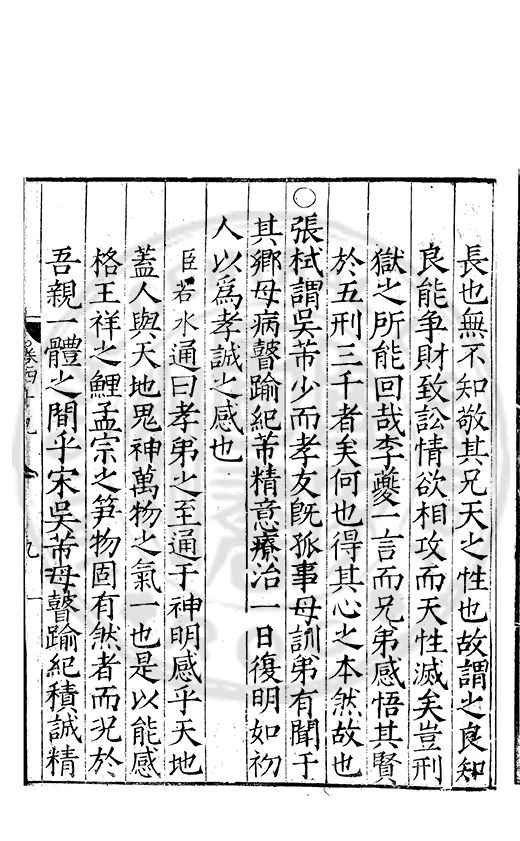 長也無不知敬其兄天之性也故謂之良知
良能争財致訟情欲相攻而天性滅矣豈刑
獄之所能回哉李夔一言而兄弟感悟其賢
於五刑三千者矣何也得其心之本然故也
○張栻謂吳芾少而孝友旣孤事母訓弟有聞于
其鄉母病瞽踰紀芾精意療治一日復明如初
人以爲孝誠之感也
臣若水通曰孝弟之至通于神明感乎天地
蓋人與天地鬼神萬物之氣一也是以能感
格王祥之鯉孟宗之笋物固有然者而况於
吾親一體之間乎宋吳芾母瞽踰紀積誠精
卷四十九
九